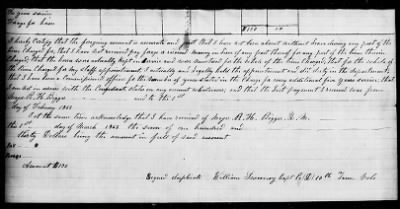 For given service
Wages for
$130
I hereby certify that the foregoing account is accurate and just that I have not been absent without leave during any part of the
time charged for, that I have not received pay forage or received money in lieu of any part thereof for any part of the time therein
charged, that the horse was actually kept in service and was mustered for the whole of the time charged, that for the whole of
the time charged for my Staff appointment I actually and legally held the appointment and did duty in the department;
that I have been a Commissioned officer for the number of years stated in the charge for every additional five years service, that
I am not in arrears with the Confederate States on any account whatsoever, and that the last payment I received was from
Major R. H. Biggs and to the 1st
day of February 1863
I at the same time acknowledge that I have received of Major R. H. Biggs Q. M.
the 1st day of March 1863 the sum of one hundred and
thirty Dollars being the amount in full of said account
Pay
Forage
Amount $130
Signed duplicate William Capt Co D 10th Tenn Vols